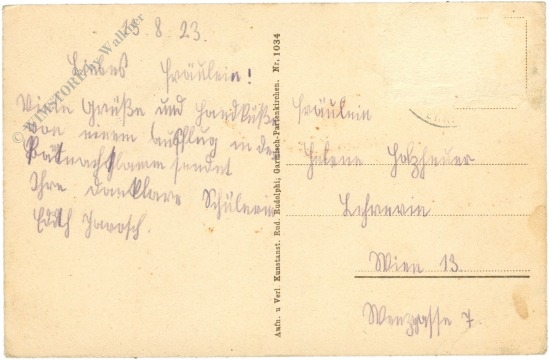 15. 8. 23.
Liebes Fräulein!
Viele Grüße und Handküsse
von einem Ausflug in die
sendet
Ihre dankbare Schülerin
Edith Jarosch.
Aufn. u Verl. Kunstanst. Rud. Rudolphi, Garmisch-Partenkirchen. Nr. 1034
Fräulein
Helene Holzheuer
Lehrerin
Wien 13
gasse 7.